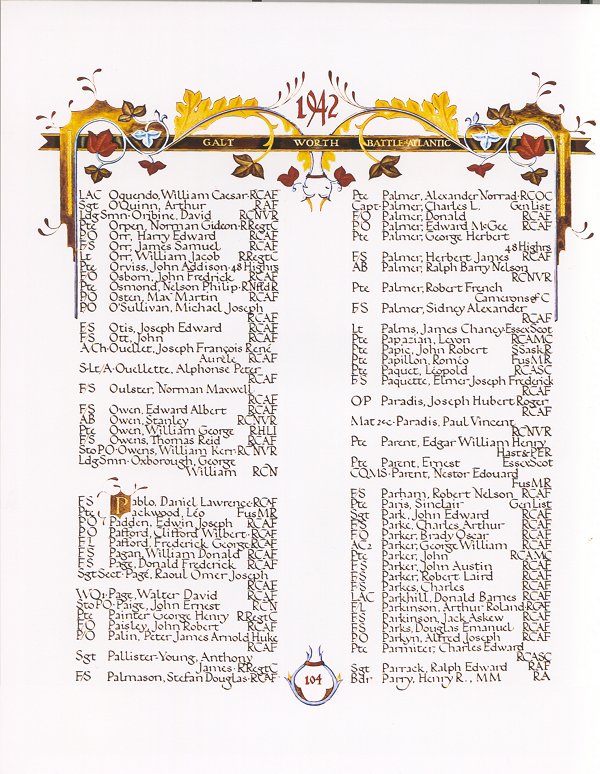 1942
GALT WORTH BATTLE-ATLANTIC
LAC Oquendo, William Caesar·RCAF
Sgt O'Quinn, Arthur RAF
LdgSmn·Oribine, David RCNVR
Pte Orpen, Norman Gideon·RRegtC
PO Orr, Harry Edward RCAF
FS Orr, James Samuel RCAF
Lt Orr, William Jacob RRegtC
Pte Orviss, John Addison·48Highrs
FO Osborn, John Fredrick RCAF
Pte Osmond, Nelson Philip·RNfldR
PO Osten, Max Martin RCAF
PO O'Sullivan, Michael Joseph
RCAF
FS Otis, Joseph Edward RCAF
FS Ott, John RCAF
ACh·Ouellet, Joseph François René
Aurèle RCAF
S-Lt/A·Ouellette, Alphonse Peter
RCAF
FS Oulster, Norman Maxwell
RCAF
FS Owen, Edward Albert RCAF
AB Owen, Stanley RCNVR
Pte Owen, William George RHLI
FS Owens, Thomas Reid RCAF
StoPO·Owens, William Kerr·RCNVR
LdgSmn·Oxborough, George
William RCN
FS Pablo, Daniel Lawrence·RCAF
Pte Packwood, Léo FusMR
PO Padden, Edwin Joseph RCAF
PO Pafford, Clifford Wilbert·RCAF
FL Pafford, Frederick George RCAF
FS Pagan, William Donald RCAF
FS Page, Donald Frederick RCAF
SgtSect·Page, Raoul Omer Joseph
RCAF
WO1·Page, Walter David RCAF
StoPO·Paige, John Ernest RCN
Pte Painter George Henry RRegtC
PO Paisley, John Robert RCAF
PO Palin, Peter James Arnold Huke
RCAF
Sgt Pallister-Young, Anthony
James·RRegtC
FS Palmason, Stefan Douglas·RCAF
Pte Palmer, Alexander Norrad·RCOC
Capt·Palmer, Charles L. GenList
FO Palmer, Donald RCAF
PO Palmer, Edward McGee RCAF
Pte Palmer, George Herbert
48Highrs
FS Palmer, Herbert James RCAF
AB Palmer, Ralph Barry Nelson
RCNVR
Pte Palmer, Robert French
Camerons of C
FS Palmer, Sidney Alexander
RCAF
Lt Palms, James Chaney·EssexScot
Pte Papazian, Levon RCAMC
Pte Papic, John Robert SSaskR
Pte Papillon, Roméo FusMR
Pte Paquet, Léopold RCASC
FS Paquette, Elmer Joseph Frederick
RCAF
OP Paradis, Joseph Hubert Roger
RCAF
Mat2ec·Paradis, Paul Vincent
RCNVR
Pte Parent, Edgar William Henry
Hast&PER
Pte Parent, Ernest EssexScot
CQMS·Parent, Nestor Edouard
FusMR
FS Parham, Robert Nelson RCAF
Pte Paris, Sinclair GenList
Sgt Park, John Edward RCAF
FS Parke, Charles Arthur RCAF
FO Parker, Brady Oscar RCAF
AC2 Parker, George William RCAF
Pte Parker, John RCAMC
FS Parker, John Austin RCAF
FS Parker, Robert Laird RCAF
FS Parkes, Charles RCAF
LAC Parkhill, Donald Barnes RCAF
FL Parkinson, Arthur Roland·RCAF
FS Parkinson, Jack Askew RCAF
FS Parks, Douglas Emanuel RCAF
PO Parkyn, Alfred Joseph RCAF
Pte Parmiter, Charles Edward
RCASC
Sgt Parrack, Ralph Edward RAF
Bdr Parry, Henry R., MM RA
104